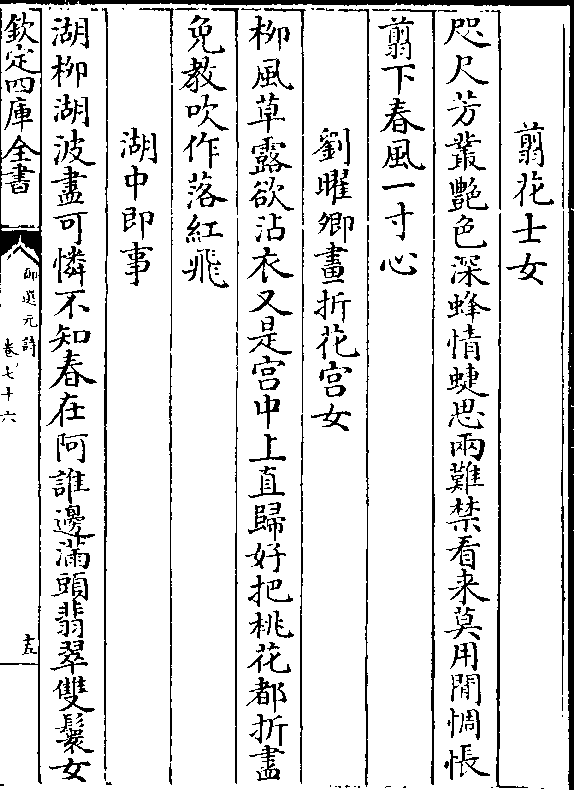 翦花士女
咫尺芳叢艷色深蜂情蜨思兩難禁看来莫用閒惆悵
翦下春風一寸心
劉曜卿畫折花宮女
柳風草露欲沾衣又是宮中上直歸好把桃花都折盡
免教吹作落紅飛
湖中即事
湖柳湖波盡可憐不知春在阿誰邊滿頭翡翠雙鬟女
欽定四庫全書
御選元詩
卷七十六
十五